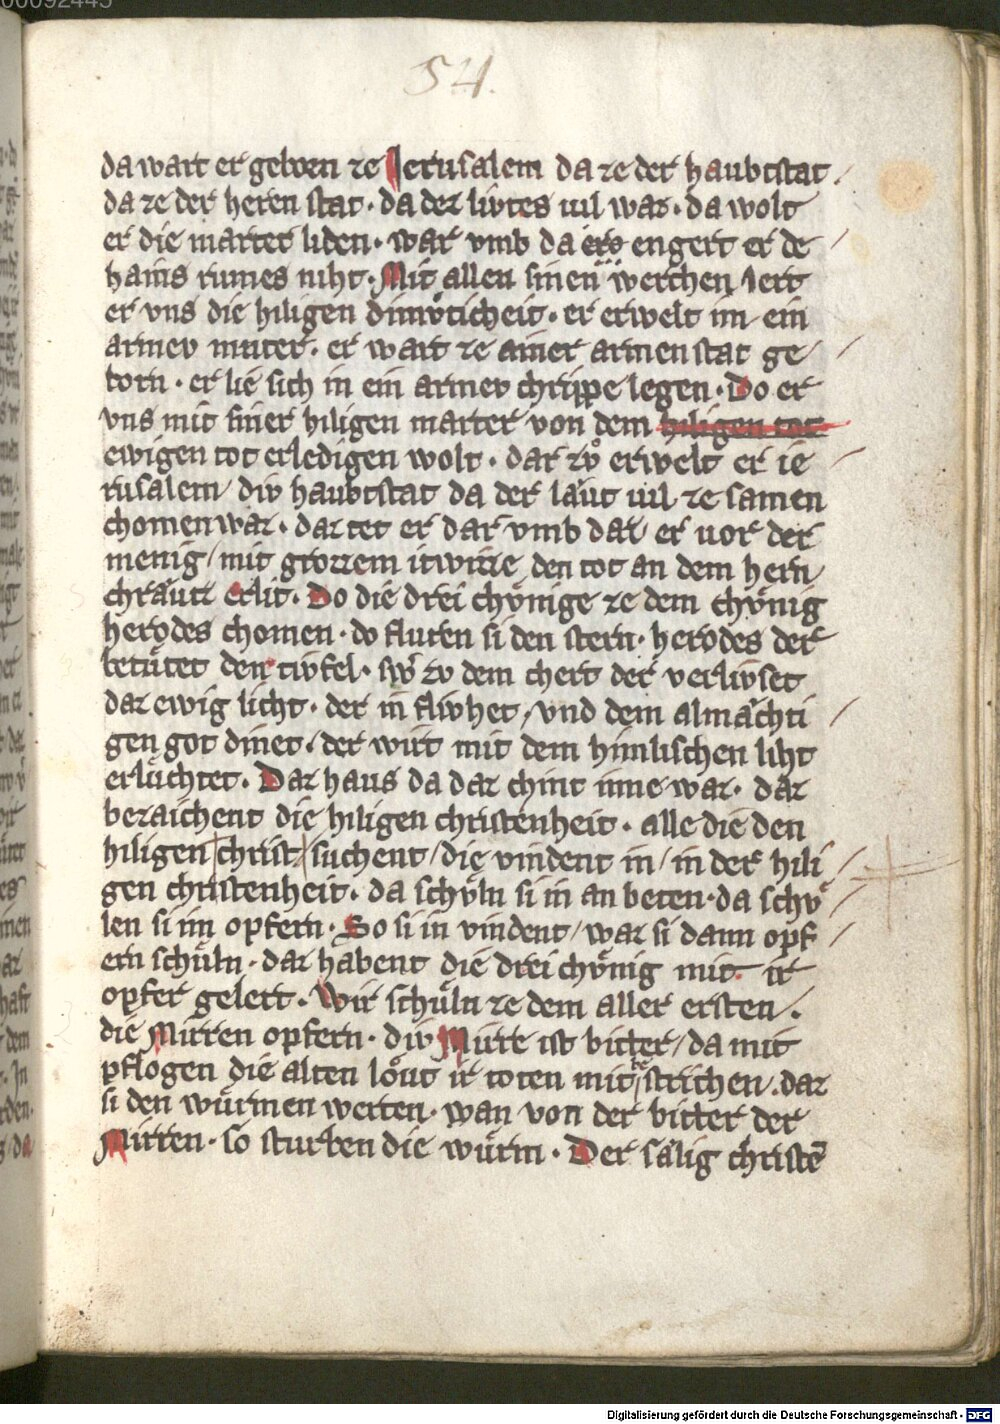 00092445
54.
da wart er geborn ze Jerusalem da ze der haubtstat
da ze der heren stat · da der livtes uil waz · da wolt
er die marter liden · war vmb da engert er de
hains rumes niht · Mit allen sinen werchen lert
er vns die hiligen dimv̊ticheit · er erwelt im ein
armev muter · er wart ze ainer armen stat ge
born · er lie sich in ein armev chrippe legen · Do er
vns mit siner hiligen marter von dem hiligen tot
ewigen tot erledigen wolt · dar zv̊ erwelt er ie
rusalem div haubtstat da der laͤut uil ze samen
chomen waz · daz tet er dar vmb daz er uor der
menig mit grozzem itwizze den tot an dem hern
chraͤutz erlit · Do die drei chv̈nige ze dem chv̈nig
herodes chomen · do flurn si den stern · herodes der
betuͤtet den tivfel · swer zv dem chert der verlivset
daz ewig licht · der in flivhet vnd dem almaͤchti
gen got dinet · der wirt mit dem himlischen liht
erluͤchtet · Daz haus da daz chint inne waz · daz
bezaichent die hiligen christenheit · alle die den
hiligen christ suchent die vindent in in der hili
gen christenheit · da schuͤln si in an beten · da schuͤ
len si im opfern · So si in vindent waz si dann opf
ern schuͤln · daz habent die drei chv̈nig mit ir
opfer gelert · Wir schuͤln ze dem aller ersten ·
die Mirren opfern · div Mirre ist bitter da mit
pflogen die alten loͤut ir toten mit be strichen daz
si den wuͤrmen werten · wan von der bitter der
Mirren · so sturben die wuͤrm · Der saͤlig christē
Digitalisierung gefördert durch die Deutsche Forschungsgemeinschaft - DFG